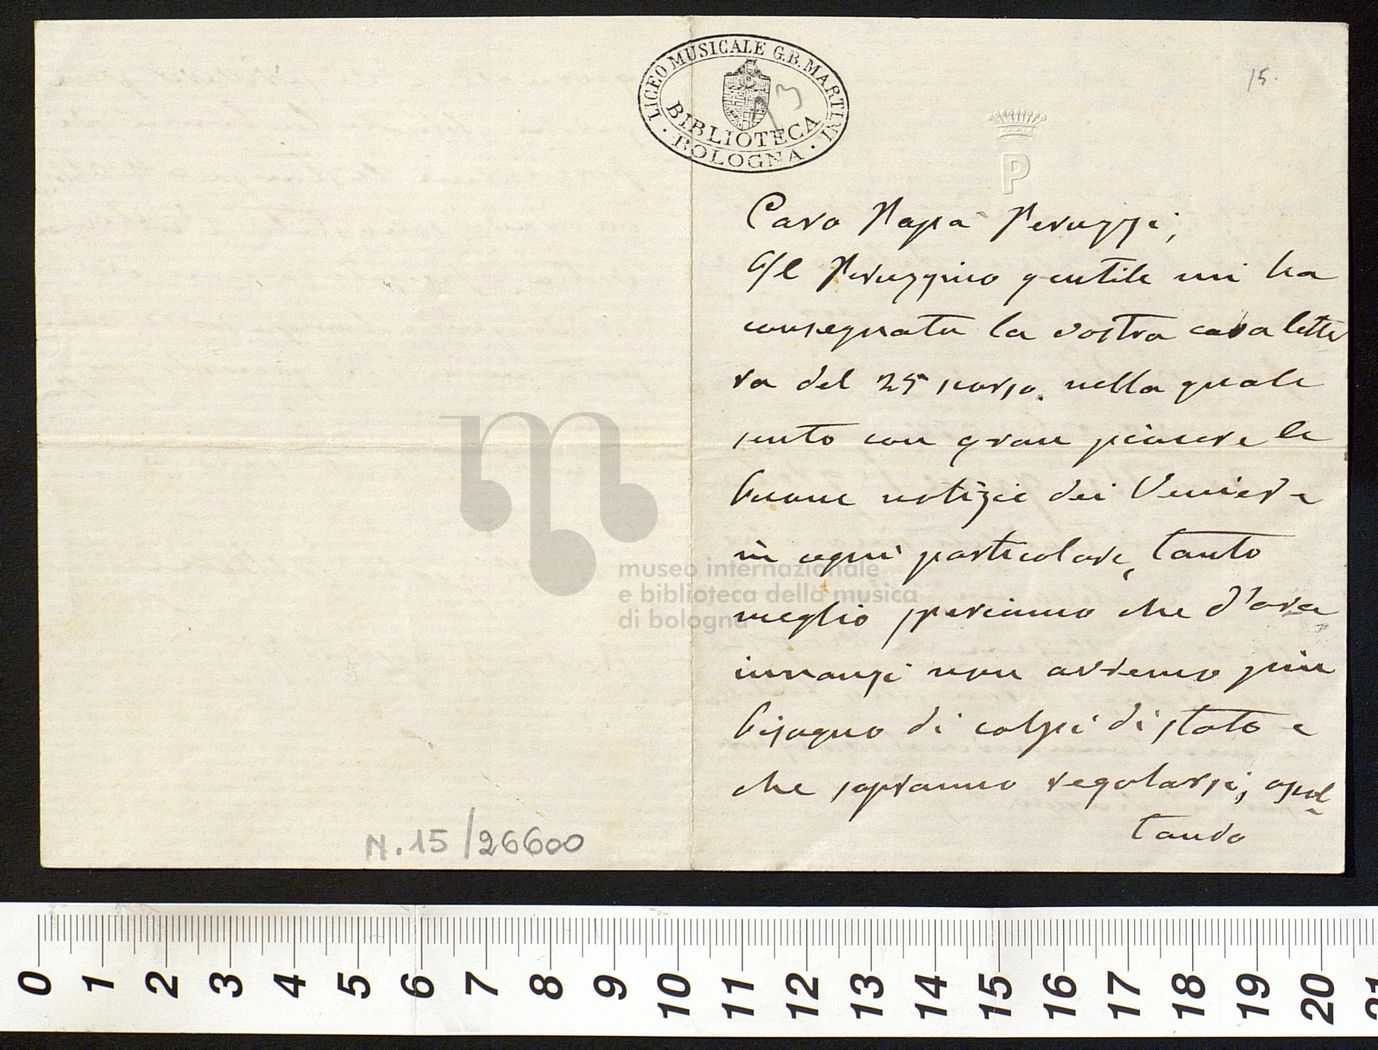 LICEO MUSICALE G.B. MARTINI
BIBLIOTECA
BOLOGNA
15.
P
Caro Papà Peruzzi,
Il Peruzzino gentile mi ha
consegnato la vostra cara lette
ra del 25 scorso, nella quale
sento con gran piacere le
buone notizie dei Veniera
in ogni particolare, tanto
meglio speriamo che d'ora
innanzi non avremo più
bisogno di colpi di stato e
che sapranno regolarsi, aspet-
tando
N. 15/26600
museo internazionale
e biblioteca della musica
di bologna
0 1 2 3 4 5 6 7 8 9 10 11 12 13 14 15 16 17 18 19 20 21